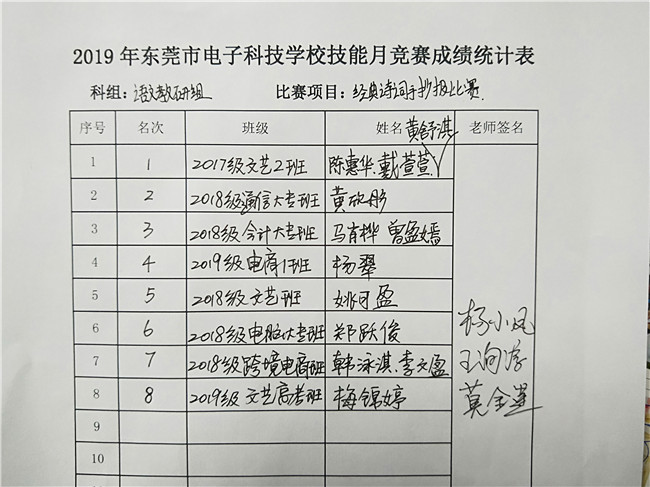 2019 年东莞市电子科技学校技能月竞赛成绩统计表
科组:语文教研组 比赛项目:经典诗词手抄报比赛
序号 名次 班级 姓名 黄舒淇 老师签名
1 1 2017级文艺2班 陈惠华.戴萱萱
2 2 2018级通信大专班 黄欣彤
3 3 2018级会计大专班 马肖桦 曾盈嫣
4 4 2019级电商1班 杨翠
5 5 2018级文艺班 姚可盈
6 6 2018级电脑大专班 郑跃俊
7 7 2018级跨境电商班 韩泳淇.李文盈
8 8 2019级文艺高考班 梅锦婷
9
10
杨小凤